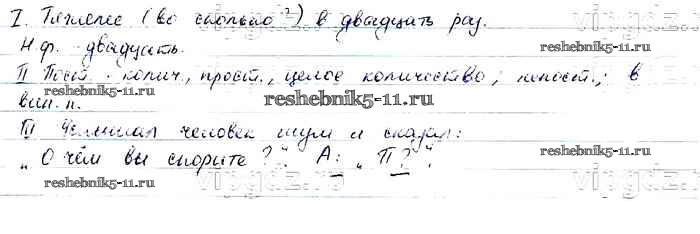 I. Тяжелее (во сколько?) в двадцать раз.
Н.ф. - двадцать.
II Пост. - колич., прост., целое количество, непост.: в
reshebnik5-11.ru
reshebnik5-11.ru
вин. п.
reshebnik5-11.ru
III Услышал человек шум и сказал:
„О чём вы спорите?". А: „П?".
reshebnik5-11.ru
reshebnik5-11.ru
vipgdz.ru